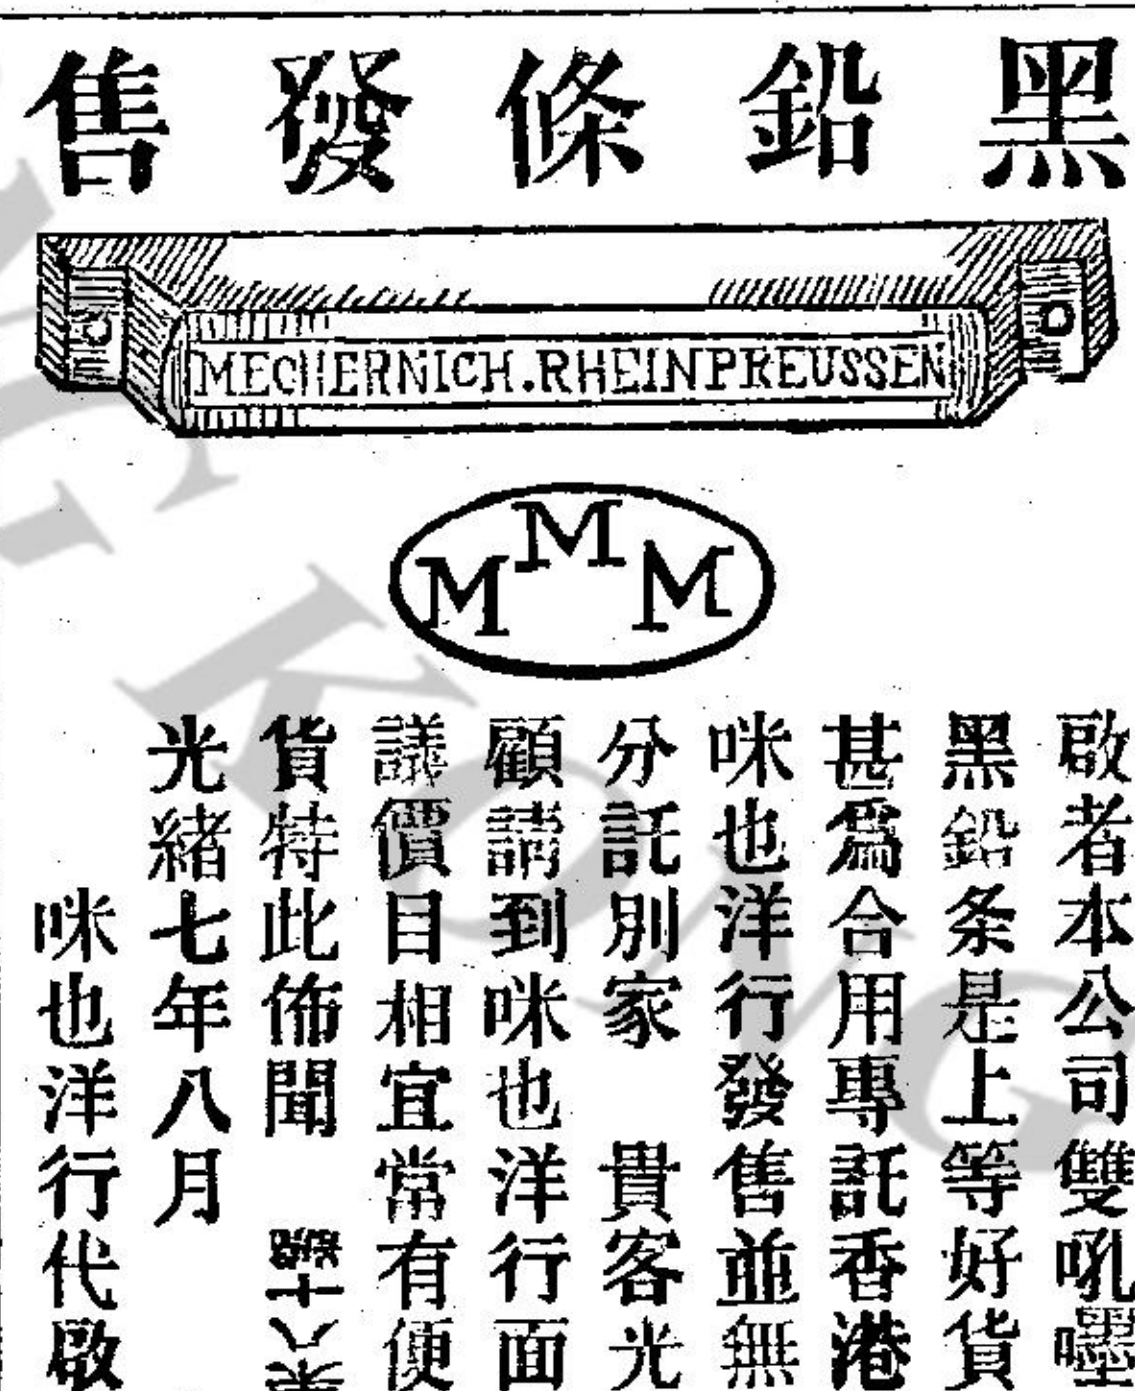 黑鉛條發售
MECHERNICH.RHEINPREUSSEN
M M M
啟者本公司雙吼嚜
黑鉛条是上等好貨
甚爲合用專託香港
咪也洋行發售並無
分託別家　貴客光
顧請到咪也洋行面
議價目相宜常有便
貨特此佈聞
光緒七年八月
咪也洋行代啟
KONG